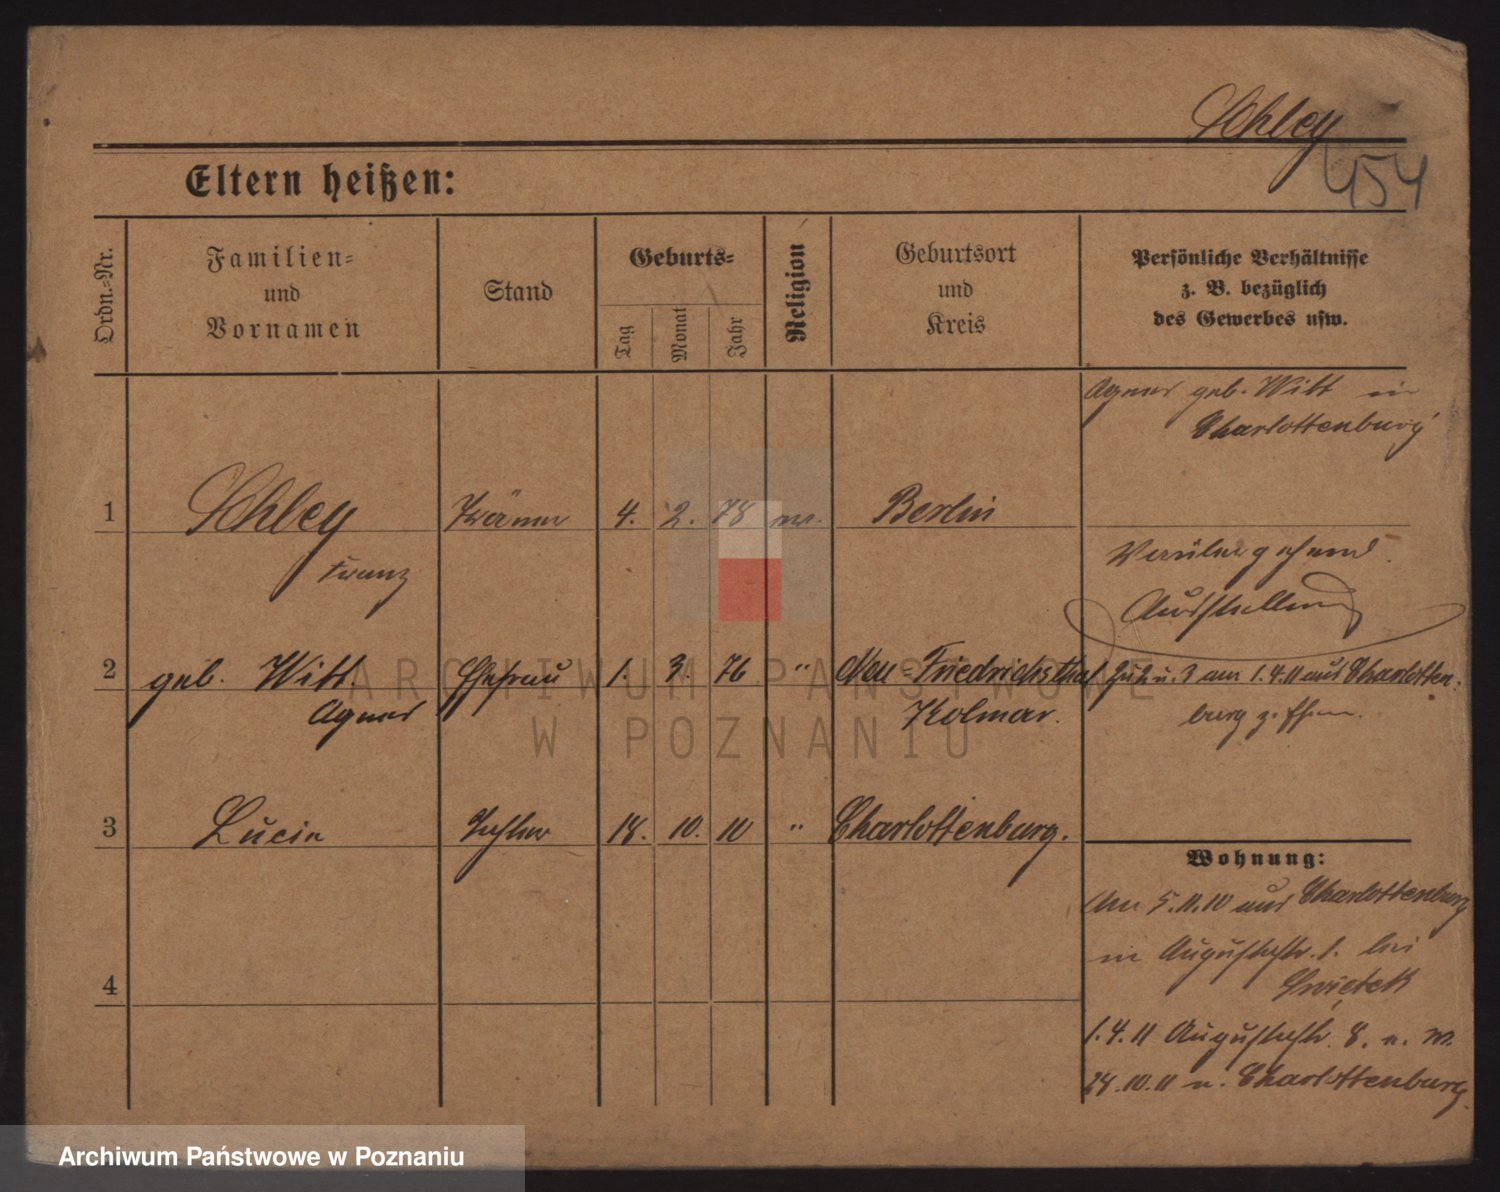 Schley
454
Eltern heißen:
Ordn.-Nr.
Familien-
und
Vornamen
Stand
Geburts-
Tag
Monat
Jahr
Religion
Geburtsort
und
Kreis
Persönliche Verhältnisse
z. B. bezüglich
des Gewerbes usw.
Agnes geb. Witt in
Charlottenburg
1 Schley 4. 2. 78 Berlin
Franz
Vorübergehend
Ausstellung
2 geb. Witt Ehefrau 1. 3. 76 " Neu-Friedrichsthal
Agnes Kolmar.
Zu 2 u. 3 am 1.4.11 aus Charlotten-
burg
3 Lucia Tochter 18. 10. 10 " Charlottenburg.
Wohnung:
Am 5.11.10 aus Charlottenburg
in Augustastr. 1. bei
Swietek
4
1.4.11 Augustastr. 8.
24.10.11 n. Charlottenburg
ARCHIWUM PAŃSTWOWE
W POZNANIU
Archiwum Państwowe w Poznaniu